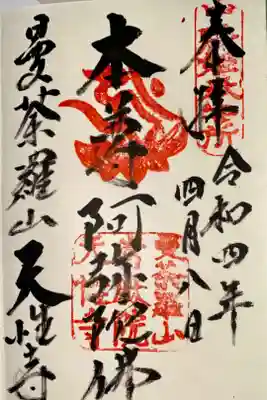 奉拝
令和四年
四月八日
本尊阿弥陀佛
曼荼羅山
天性寺
曼荼羅山